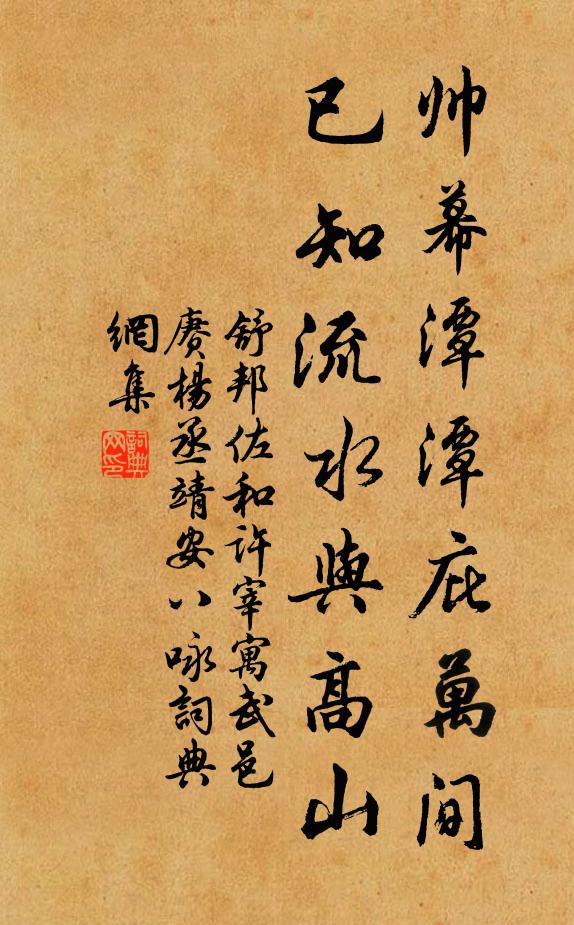 帅幕潭潭庇萬間
已知流水與高山
舒邦佐和許宰寓武邑
賡楊丞靖安八咏詞典
網集
詞典
网印